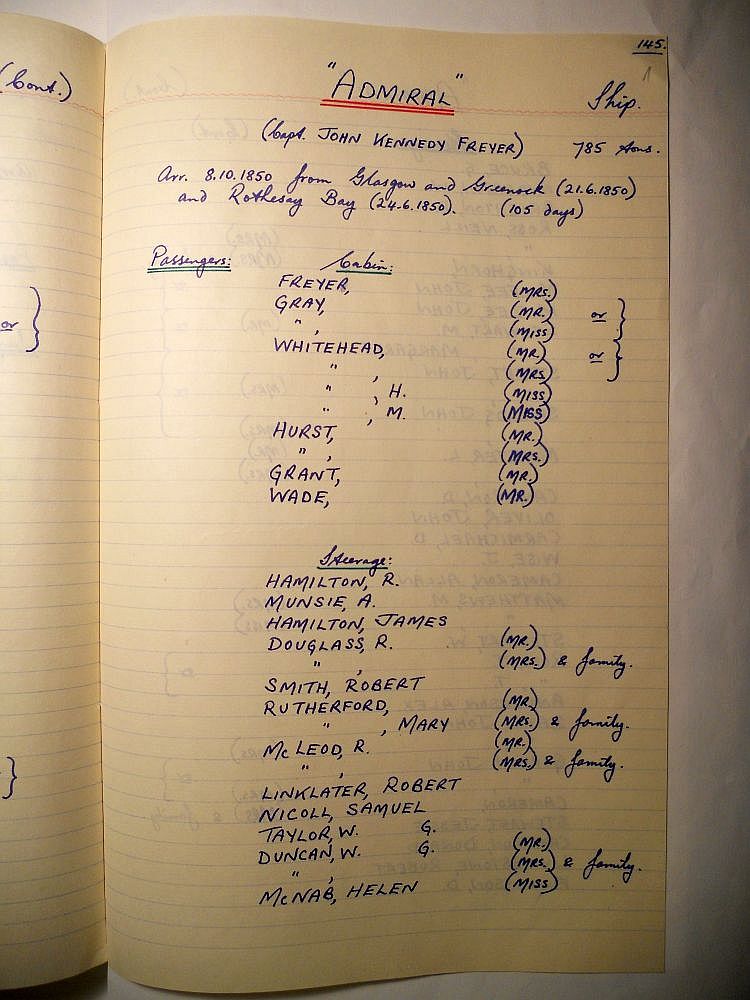 145.
(Cont.)
"ADMIRAL" Ship.
(Capt. JOHN KENNEDY FREYER) 785 tons.
Arr. 8.10.1850 from Glasgow and Greenock (21.6.1850)
and Rothesay Bay (24.6.1850). (105 days)
Passengers: Cabin:
FREYER, (MRS.)
GRAY, (MR.) or }
" , (MISS)
WHITEHEAD, (MR.) or }
" , (MRS.)
" , H. (MISS)
" , M. (MISS)
HURST, (MR.)
" , (MRS.)
GRANT, (MR.)
WADE, (MR.)
Steerage:
HAMILTON, R.
MUNSIE, A.
HAMILTON, JAMES
DOUGLASS, R. (MR.)
" , (MRS.) & family.
SMITH, ROBERT
RUTHERFORD, (MR.)
" , MARY (MRS.) & family.
McLEOD, R. (MR.)
" , (MRS.) & family.
LINKLATER, ROBERT
NICOLL, SAMUEL
TAYLOR, W. G.
DUNCAN, W. G. (MR.)
" , (MRS.) & family.
McNAB, HELEN (MISS)
or }
}